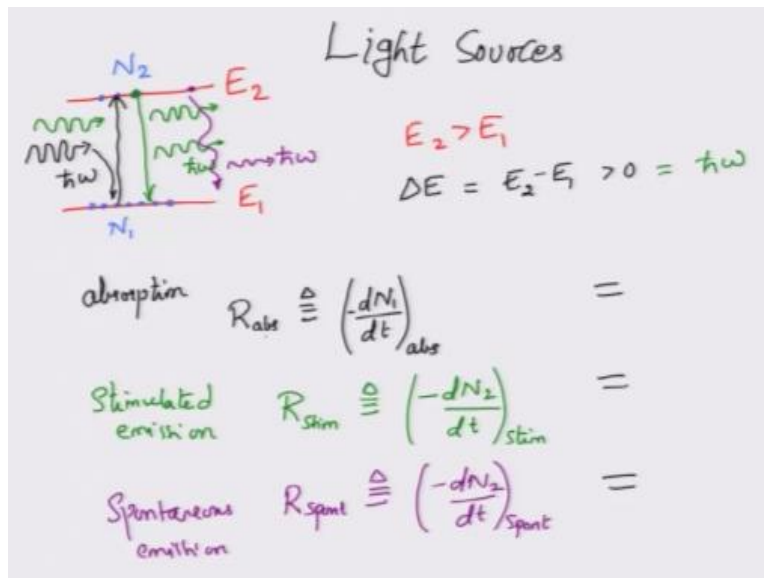 Light Sources
N₂
E₂
ħω
ħω
ħω
E₁
N₁
E₂ > E₁
ΔE = E₂ - E₁ > 0 = ħω
absorption R_abs ≜ (-dN₁/dt)_abs =
Stimulated emission R_stim ≜ (-dN₂/dt)_stim =
Spontaneous emission R_spont ≜ (-dN₂/dt)_spont =